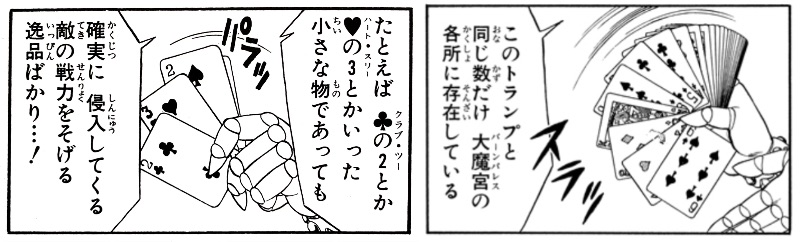 このトランプと
同じ数だけ 大魔宮の
各所に存在している
スラッ
たとえば ♣の2とか
♥の3とかいった
小さな物であっても
パラッ
2
3
2
確実に 侵入してくる
敵の戦力をそげる
逸品ばかり…!